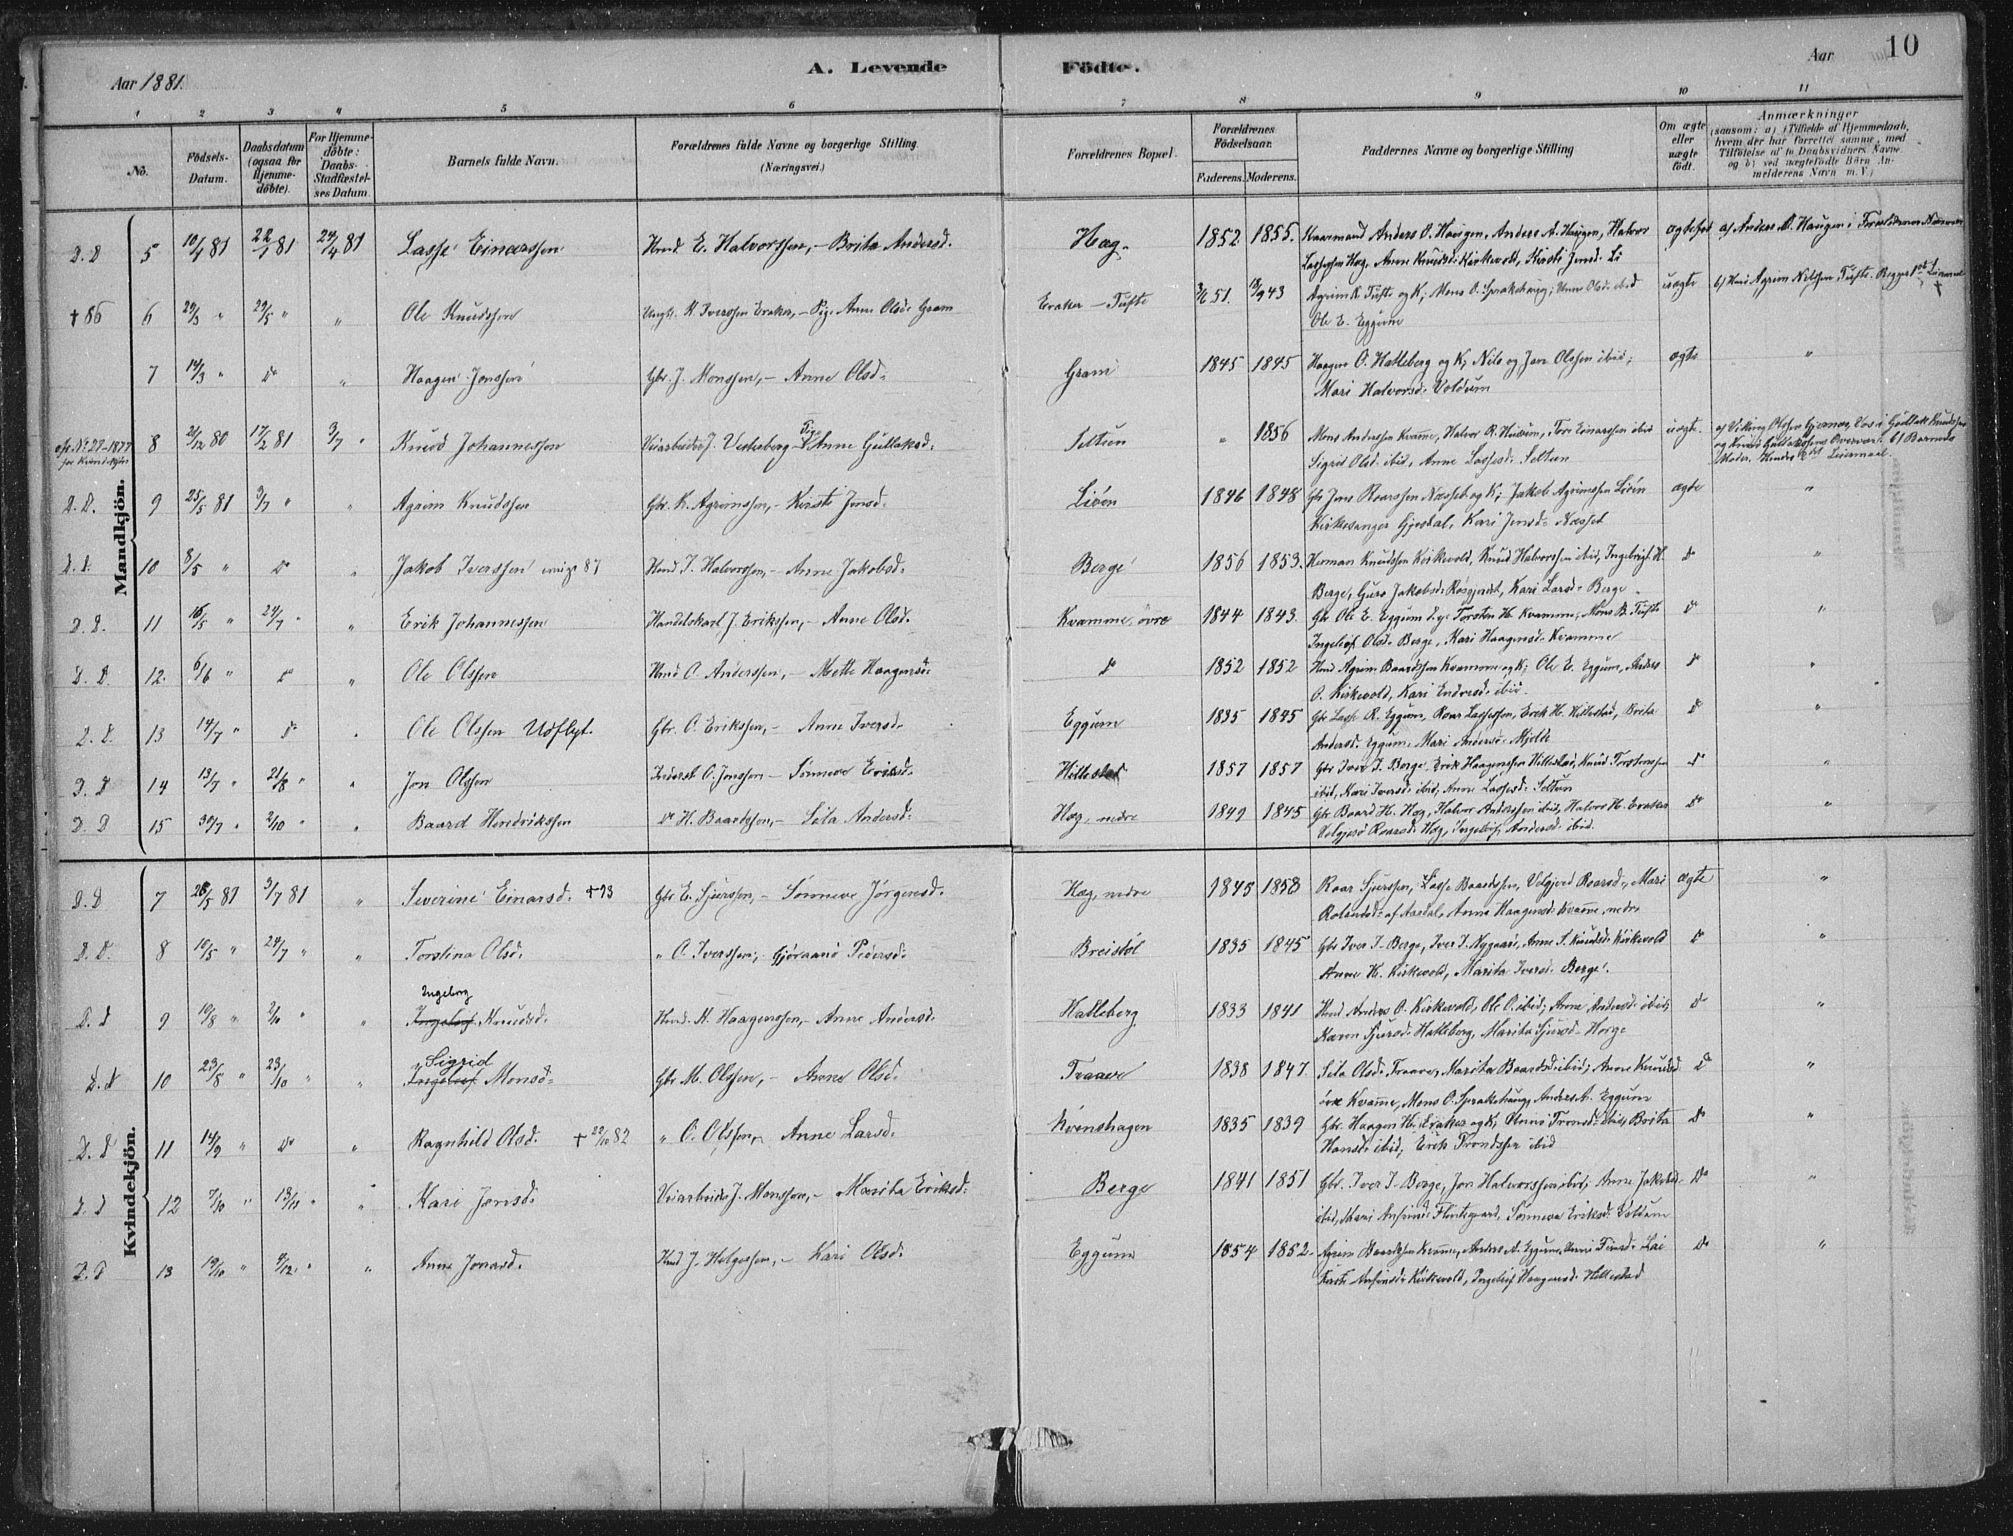 Aar 1881.
A. Levende Födte.
Aar
10
1 2 3 4 5 6 7 8 9 10 11
No.
Födsels-Datum.
Daabsdatum (ogsaa for Hjemme-döbte).
For Hjemme-döbte: Daabs-Stadfæstel-ses Datum.
Barnets fulde Navn.
Forældrenes fulde Navne og borgerlige Stilling. (Næringsvei.)
Forældrenes Bopæl.
Forældrenes Födselsaar.
Faderens. Moderens.
Faddernes Navne og borgerlige Stilling
Om ægte eller uægte födt.
Anmærkninger
(saasom: a) i Tilfælde af Hjemmedaab, hvem der har forrettet samme, med Tilföielse af to Daabsvidners Navne og b) ved uægtefödte Börn An-melderens Navn m. V.)
Mandkjön.
D. D 5 10/4 81 22/4 81 24/4 81 Lasse Einarssen Hmd E. Halvorssen, - Brita Andersd. Hæg. 1852 1855. Kaarmand Anders O. Haugen, Anders A. Haugen, Halvor ægtefød a) Anders O. Haugen i Forældrenes Nærvær
Lassessen Hæg, Anne Knudsd. Kirkevold, Kirsti Jensd. Li
+ 86 6 29/3 " 29/5 " " Ole Knudssen Ungk. K. Iverssen Eraker, - Pige Anne Olsd. Gram Eraker - Tufte 3/6 51. 18/9 43 Agrim K. Tufte og K; Mons O. Sprakehaug; Anne Olsd. ibid uægte b) Hmd Agrim Nilssen Tufte. Begges 1st Leiermaal
Ole E. Eggum
7 14/3 " do " Haagen Jonssen Gbr. J. Monssen, - Anne Olsd. Gram 1845 1845 Haagen O. Hatleberg og K; Nils og Jon Olssen ibid; ægte "
Mari Halvorsd. Voldum
cfr. No 27 - 1877 for Kvindekjön 8 21/12 80 17/2 81 3/7 " Knud Johannessen Veiarbeider J. Vestesberg - Pige Anne Gullaksd. Seltun " 1856 Mons Anderssen Kvamme, Halvor R. Heisum, Tore Einarssen ibid uægte. a) Viking Olssen Gjernæs, Vos i Gullak Knudssen
Sigrid Olsd. ibid, Anne Lassesd. Seltun og Knud Gullakssens Overvær. b) Barnets Moder. Hendes 2det Leiermaal.
D. D. 9 25/5 81 3/7 " " Agrim Knudssen Gbr. K. Agrimssen, - Kirsti Jensd. Liöen 1846 1848 Gbr Jens Roarssen Næsset og K; Jakob Agrimssen Liöen ægte "
Kirkesanger Gjesdal, Kari Jensd. Næsset
D. D. 10 8/5 " do " Jakob Iverssen emigr 87 Hmd I. Halvorssen, - Anne Jakobsd. Berge 1856 1853. Herman Knudssen Kirkevold, Knud Halvorssen ibid, Ingebrigt H. do "
Berge, Guro Jakobsd. Rösgjerdt, Kari Larsd. Berge
D. D. 11 16/5 " 24/7 " " Erik Johannessen Handelskarl J. Erikssen, - Anne Olsd. Kvamme, övre 1844 1843. Gbr Ole E. Eggum Torsten H. Kvamme, Mons B. Tufte do "
Ingeleif Olsd. Berge, Kari Haagensd. Kvamme
D. D. 12. 6/6 " do " Ole Olssen Hmd O. Anderssen, - Mette Haagensd. do 1852 1852 Hmd Agrim Baardssen Kvamme og K; Ole E. Eggum, Anders do "
O. Kirkevold, Kari Endresd. ibid.
D. D. 13 14/7 " do " Ole Olssen Udflyt. Gbr. O. Erikssen, - Anne Iversd. Eggum 1835 1845 Gbr Lasse R. Eggum, Roar Lassessen, Erik H. Hillestad, Brita do "
Andersd. Eggum, Mari Andersd. Mjelde
D. D 14 13/7 " 21/8 " " Jon Olssen Inderst O. Jonssen - Sönneva Eriksd. Hillestad 1857 1857 Gbr Iver I. Berge, Erik Haagenssen Hillestad, Knud Torstenssen do "
ibid, Kari Iversd. ibid, Anne Lassesd. Seltun
D. D 15 30/7 " 2/10 " " Baard Hendrikssen do H. Baardssen, - Sila Andersd. Hæg, nedre 1849 1845 Gbr Baard H. Hæg, Halvor Anderssen ibid, Halvor H. Eraker do "
Velgjerd Roarsd. Hæg, Ingeleif Andersd. ibid.
Kvindekjön.
D. D 7 28/5 81 3/7 81 " Severine Einarsd. + 93 Gbr E. Sjurssen, - Sönneva Jörgensd. Hæg, nedre 1845 1858 Roar Sjurssen, Lasse Baardssen, Velgjerd Roarsd., Mari ægte "
Rolandsd. af Aardal, Anna Haagensd. Kvamme, nedre
D. D. 8 10/5 " 24/7 " " Torstina Olsd. " O. Iverssen, - Gjöraand Pedersd. Breistöl 1835 1845 Gbr Iver I. Berge, Iver I. Nygaard, Anne S. Knudsd. Kirkevold do "
Anne H. Kirkevold, Marita Iversd. Berge.
D. D 9 10/8 " 2/10 " " Ingeborg Ingeleif Knudsd. Hmd. K. Haagenssen, - Anne Andersd. Hatleberg 1833 1841 Hmd Anders O. Kirkevold, Ole O. ibid; Anne Andersd. ibid, do "
Karen Sjursd. Hatleberg, Marita Sjursd. Horge
D. D 10 23/8 " 23/10 " " Sigrid Ingeleif Monsd. Gbr M. Olssen, - Anne Olsd. Traave 1838 1847. Sila Olsd. Traave, Marita Baardsd. ibid; Anne Knudsd. do "
övre Kvamme, Mons O. Sprakehaug, Anders A. Eggum
D. D 11 14/9 " do " Ragnhild Olsd. + 29/10 82 " O. Olssen, - Anne Larsd. Kvenshagen 1835 1839 Gbr. Haagen H. Eraker og K; Anne Tronsd. ibid, Brita do "
Hansd. ibid; Erik Trondssen ibid
D. D 12 7/10 " 13/11 " " Kari Jonsd. Veiarbeider J. Monssen, - Marita Eriksd. Berge 1841 1851 Gbr. Iver I. Berge, Jon Halvorssen ibid, Anne Jakobsd. do "
ibid, Mari Anfinsd. Flintegaard, Sönneva Eriksd. Voldum
D. D 13 19/10 " 4/12 " " Anne Jonasd. Hmd J. Helgessen, - Kari Olsd. Eggum 1854 1852. Agrim Baardssen Kvamme, Anders A. Eggum, Anne do "
Kirsti Anfinsd. Kirkevold, Ingeleif Haagensd. Hillestad